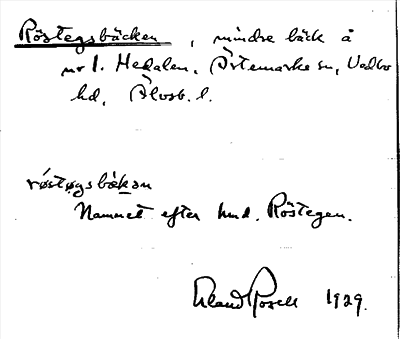 Röstegsbäcken, mindre bäck å
nr 1. Hedalen, Ärtemarks sn, Vedbo
hd, Älvsb. l.
røstøgsbäkan
Namnet efter hmd. Röstegen.
Erland Rosell 1929.